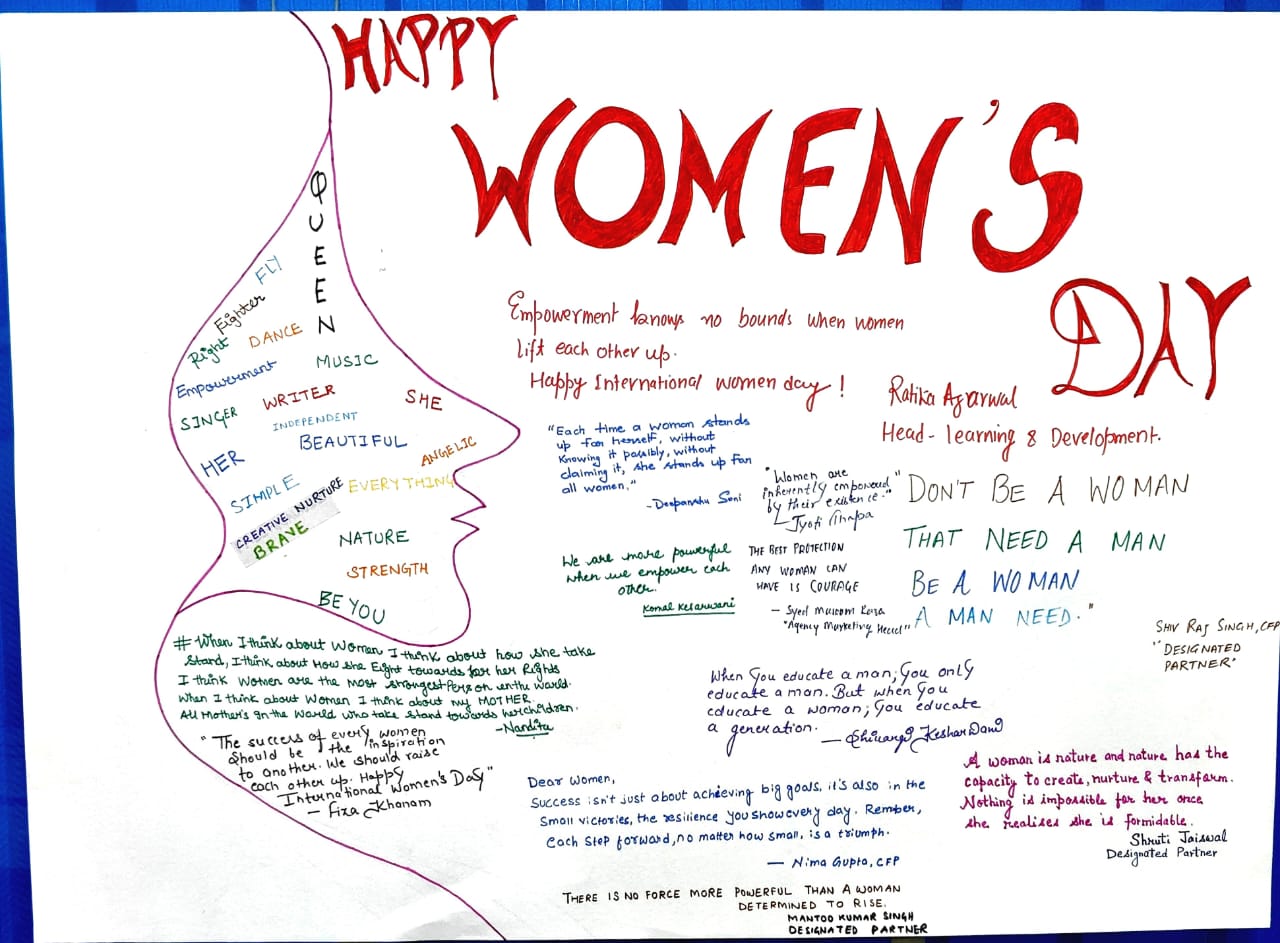 HAPPY
WOMEN'S
DAY
QUEEN
FLY
Fighter
Right
DANCE
Empowerment
MUSIC
SINGER
WRITER
SHE
INDEPENDENT
BEAUTIFUL
HER
ANGELIC
SIMPLE
EVERYTHING
CREATIVE NURTURE
BRAVE
NATURE
STRENGTH
BE YOU
Empowerment knows no bounds when women
lift each other up.
Happy International women day !
Ratika Agarwal
Head - learning & Development.
"Each time a woman stands
up for herself, without
knowing it possibly, without
claiming it, she stands up for
all women."
- Deepanshu Soni
"Women are
inherently empowered
by their existence."
- Jyoti Thapa
DON'T BE A WOMAN
THAT NEED A MAN
BE A WOMAN
A MAN NEED."
SHIV RAJ SINGH, CFP
"DESIGNATED
PARTNER"
We are more powerful
when we empower each
other.
Komal Kesarwani
THE BEST PROTECTION
ANY WOMAN CAN
HAVE IS COURAGE
- Syed
"Agency Marketing Head"
# When I think about Women I think about how she take
Stand, I think about How she Fight towards for her Rights
I think Women are the Most strongest Person in the World.
When I think about Women I think about my MOTHER.
All Mother's In the World who take stand towards her children.
- Nandita
"The success of every women
should be the inspiration
to another. We should raise
each other up. Happy
International Women's Day"
- Fiza Khanam
When you educate a man; you only
educate a man. But when you
educate a woman; you educate
a generation.
- Shivangi KesharWani
Dear Women,
Success isn't just about achieving big goals, it's also in the
small victories, the resilience you show every day. Rember,
each step forward, no matter how small, is a triumph.
- Nima Gupta, CFP
A woman is nature and nature has the
capacity to create, nurture & transform.
Nothing is impossible for her once
she realises she is formidable.
Shruti Jaiswal
Designated Partner
THERE IS NO FORCE MORE POWERFUL THAN A WOMAN
DETERMINED TO RISE.
MANTOO KUMAR SINGH
DESIGNATED PARTNER